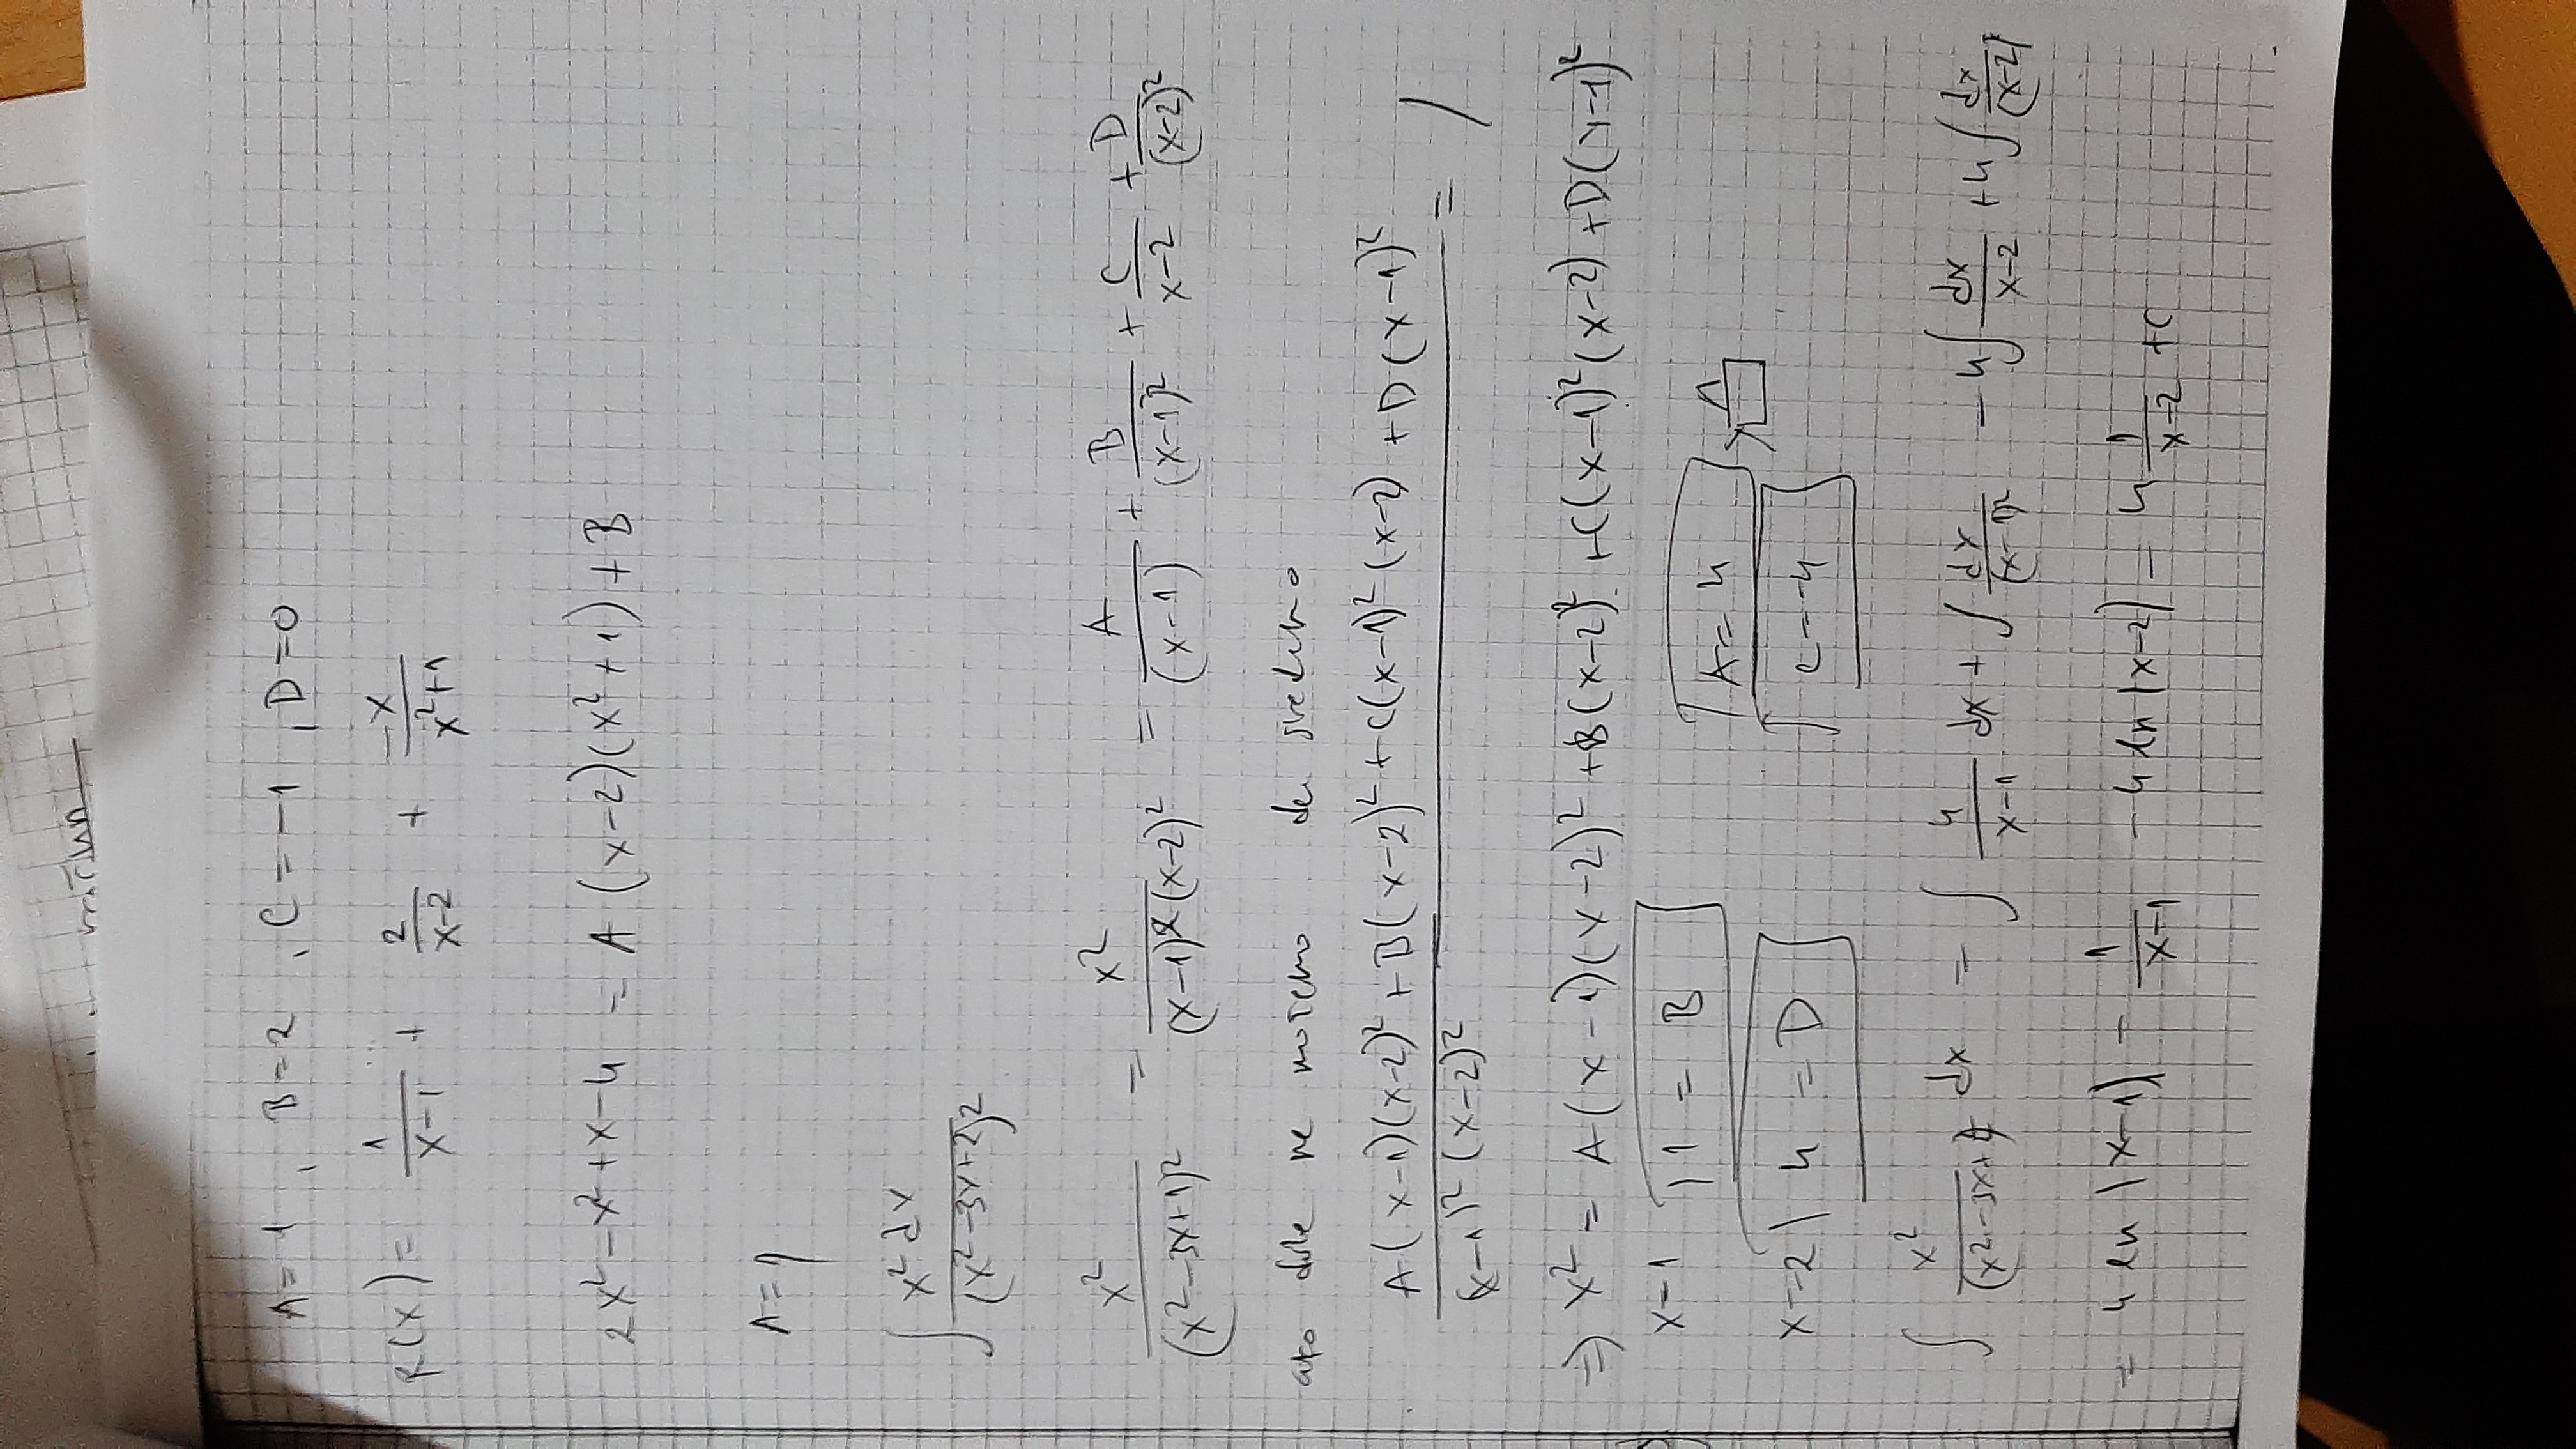 A = 1 , B = 2 , C = -1 , D = 0
R(x) = 1/(x-1) + 2/(x-2) + -x/(x²+1)
2x² - x² + x - 4 = A (x-2)(x²+1) + B
A = 1
∫ x² dx/(x²-3x+2)²
x²/(x²-3x+1)² = x²/((x-1)²(x-2)²) = A/(x-1) + B/(x-1)² + C/(x-2) + D/(x-2)²
ako dole ne možemo da svedemo
(A(x-1)(x-2)² + B(x-2)² + C(x-1)²(x-2) + D(x-1)²)/((x-1)²(x-2)²) = /
⇒ x² = A(x-1)(x-2)² + B(x-2)² + C(x-1)²(x-2) + D(x-1)²
x=1 1 = B A = 4
x=2 4 = D C = -4
∫ x²/(x²-3x+2) dx = ∫ 4/(x-1) dx + ∫ dx/(x-1)² - 4∫ dx/(x-2) + 4∫ dx/(x-2)²
= 4 ln |x-1| - 1/(x-1) - 4 ln |x-2| - 4 1/(x-2) + C